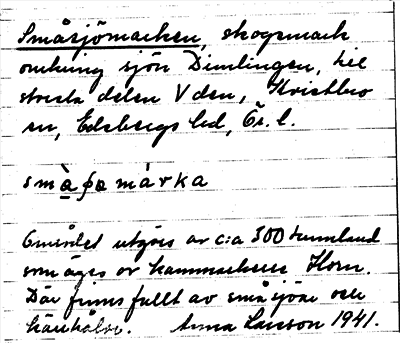 Småsjömarken, skogsmark
omkring sjön Dimlingen, till
största delen V den, Kristbro
sn, Edsbergs hd, Ör. l.
småʃomárka
Området utgöres av c:a 300 tunnland
som äges av kammarherre Horn.
Där finns fullt av småsjöar och
kärrhålor. Anna Larsson 1941.